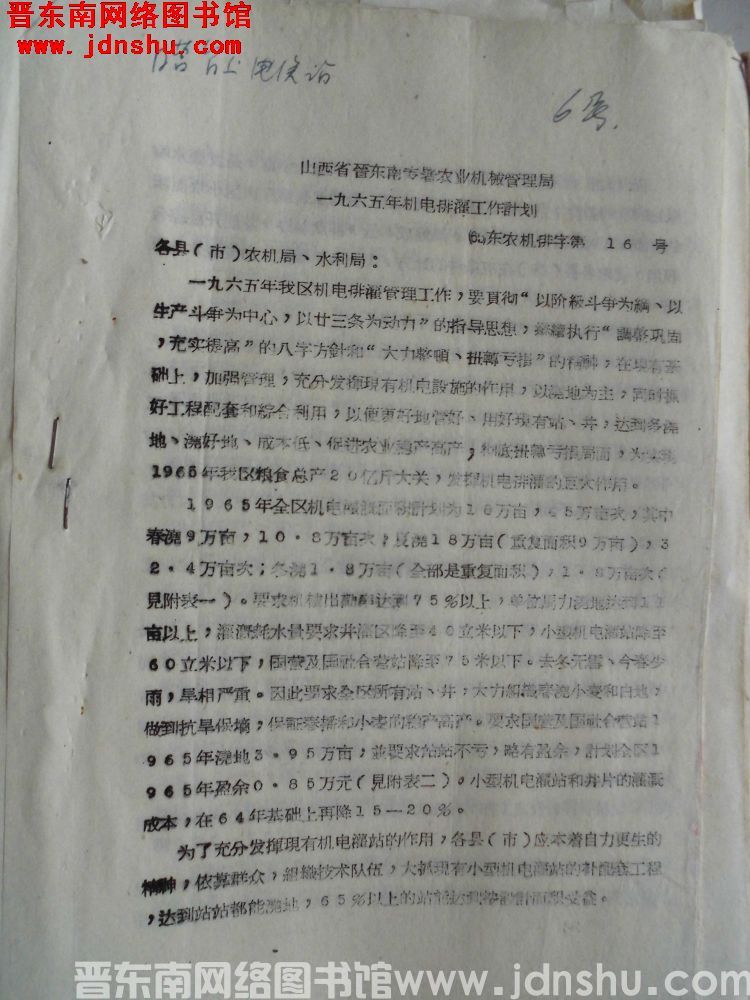 晋东南网络图书馆
www.jdnshu.com
6号
山西省晉东南专署农业机械管理局
一九六五年机电排灌工作計划
(65)东农机排字第 16 号
各县(市)农机局、水利局:
一九六五年我区机电排灌管理工作,要貫彻“以阶級斗争为綱、以
生产斗争为中心,以廿三条为动力”的指导思想,継續执行“調整巩固
,充实提高”的八字方針和“大力整頓、扭轉亏損”的精神,在現有基
础上,加强管理,充分发揮現有机电設施的作用,以澆地为主,同时搞
好工程配套和綜合利用,以便更好地管好、用好現有站、井,达到多澆
地、澆好地、成本低、促进农业稳产高产,彻底扭轉亏損局面,为实現
1965年我区粮食总产20亿斤大关,发揮机电排灌的巨大作用。
1965年全区机电灌溉面积計划为18万亩,45万亩次,其中
春澆9万亩,10·8万亩次;夏澆18万亩(重复面积9万亩),3
2·4万亩次;冬澆1·8万亩(全部是重复面积),1·8万亩次(
見附表一)。要求机械出勤率达到75%以上,单位馬力澆地达到11
亩以上,灌溉耗水量要求井灌区降至40立米以下,小型机电灌站降至
60立米以下,国营及国社合营站降至75米以下。去冬无雪、今春少
雨,旱相严重。因此要求全区所有站、井,大力組織春澆小麦和白地,
做到抗旱保墒,保証春播和小麦的稳产高产。要求国营及国社合营站1
965年澆地3·95万亩,並要求站站不亏,略有盈余,計划全区1
965年盈余0·85万元(見附表二)。小型机电灌站和井片的灌溉
成本,在64年基础上再降15—20%。
为了充分发揮現有机电灌站的作用,各县(市)应本着自力更生的
精神,依靠群众,組織技术队伍,大抓現有小型机电灌站的补配套工程
,达到站站都能澆地,65%以上的站能达到面积受益。
晋东南网络图书馆www.jdnshu.com